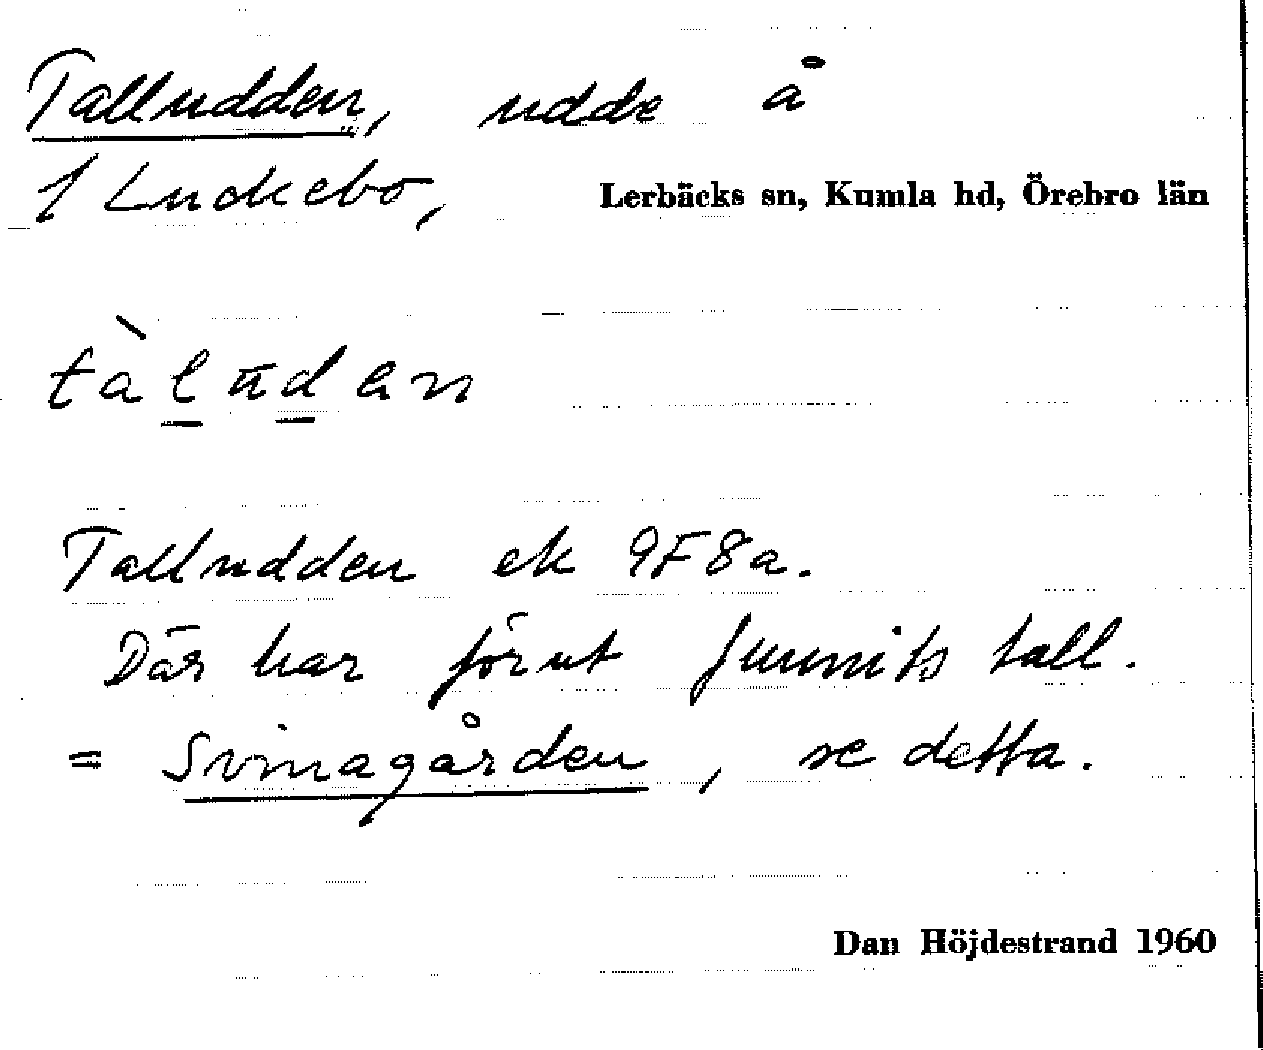 Talludden, udde å
1 Luckebo, Lerbäcks sn, Kumla hd, Örebro län
tàlūdan
Talludden ek 9F8a.
Där har förut funnits tall.
= Svinagården, se detta.
Dan Höjdestrand 1960